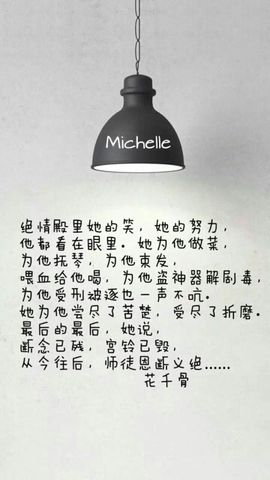 Michelle
绝情殿里她的笑，她的努力，
他都看在眼里。她为他做菜，
为他抚琴，为他束发，
喂血给他喝，为他盗神器解剧毒，
为他受刑被逐也一声不吭。
她为他尝尽了苦楚，受尽了折磨。
最后的最后，她说，
断念已残，宫铃已毁，
从今往后，师徒恩断义绝……
花千骨